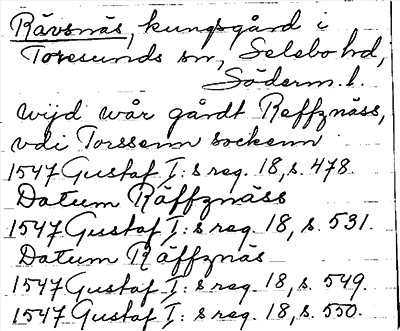 Rävsnäs, kungsgård i
Toresunds sn, Selebo hd,
Söderm. l.
wijd wår gårdt Reffznäss,
vdi Torssenn sockenn
1547 Gustaf I:s reg. 18, s. 478.
Datum Räffznäss
1547 Gustaf I:s reg. 18, s. 531.
Datum Räffznäs
1547 Gustaf I:s reg. 18, s. 549.
1547 Gustaf I:s reg. 18, s. 550.